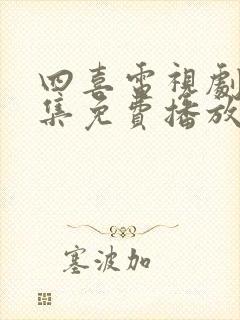 四喜電視劇
集免費播放
塞波加